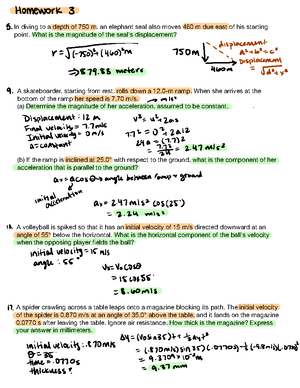 Homework 3
5. In diving to a depth of 750 m, an elephant seal also moves 460 m due east of his starting
point. What is the magnitude of the seal's displacement?
r = √(-750)²+(460)²m
⇒ 879.83 meters
750m
460m
displacement
a²+b²=c²
Displacement
= √d²+x²
9. A skateboarder, starting from rest, rolls down a 12.0-m ramp. When she arrives at the
bottom of the ramp her speed is 7.70 m/s. → m/s²
(a) Determine the magnitude of her acceleration, assumed to be constant.
Displacement = 12 m
Final velocity = 7.7m/s
Initial velocity = 0 m/s
a = constant
= 2.47 m/s²
(b) If the ramp is inclined at 25.0° with respect to the ground, what is the component of her
acceleration that is parallel to the ground?
a₁ = a cos θ → angle between ramp & ground
initial
acceleration
a₁ = 2.47 m/s² cos(25°)
= 2.24 m/s²
A volleyball is spiked so that it has an initial velocity of 15 m/s directed downward at an
angle of 55° below the horizontal. What is the horizontal component of the ball's velocity
when the opposing player fields the ball?
initial velocity = 15 m/s
angle : 55°
= 15 cos 55°
= 8.60 m/s
17. A spider crawling across a table leaps onto a magazine blocking its path. The initial velocity
of the spider is 0.870 m/s at an angle of 35.0° above the table, and it lands on the magazine
0.0770 s after leaving the table. Ignore air resistance. How thick is the magazine? Express
your answer in millimeters.
initial velocity = .870m/s
θ = 35
time = .0770s
thickness?
= 9.37 mm